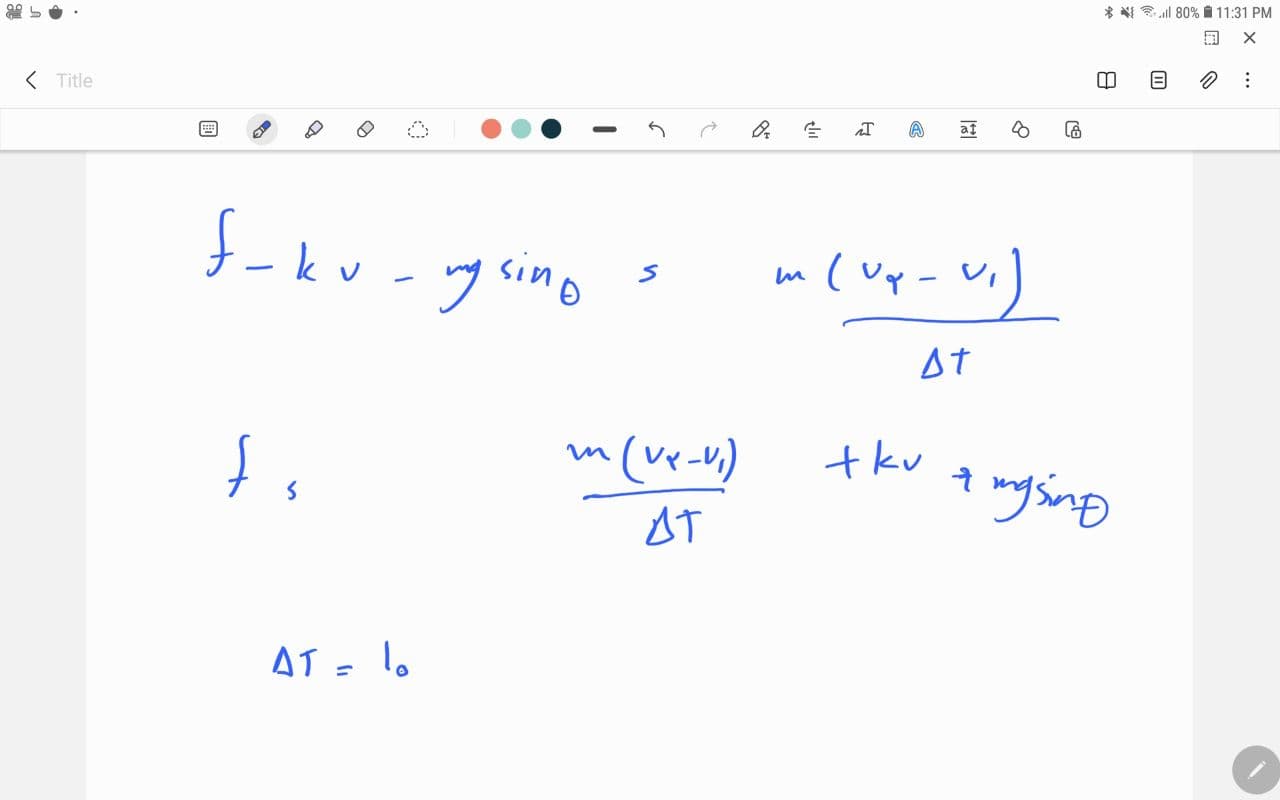 80% 11:31 PM
Title
f - kv - mg sinθ = m(v₂ - v₁) / ΔT
f = m(v₂ - v₁) / ΔT + kv + mg sinθ
ΔT = 10